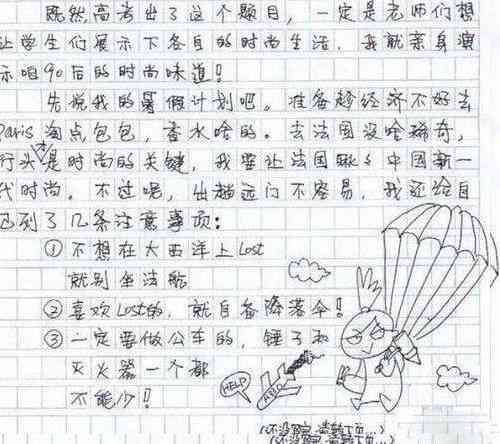 既然高考出了这个题目，一定是老师们想
让学生们展示下各自的时尚生活，我就亲身演
示咱90后的时尚味道！
先说我的暑假计划吧。准备趁经济不好去
Paris淘点包包，香水啥的。去法国没啥稀奇，
行头是时尚的关键，我要让法国瞅瞅中国新一
代时尚。不过呢，出趟远门不容易，我还给自
己列了几条注意事项：
①不想在大西洋上Lost
就别坐法航
②喜欢Lost的，就自备降落伞！
③一定要做公车的，锤子和
灭火器一个都
不能少！
HELP
(还没写完,请翻下页...)
(还没写完,请翻下页...)